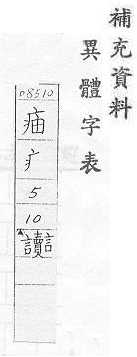 補充資料
異體字表
08510
痡
疒
5
10
讀言